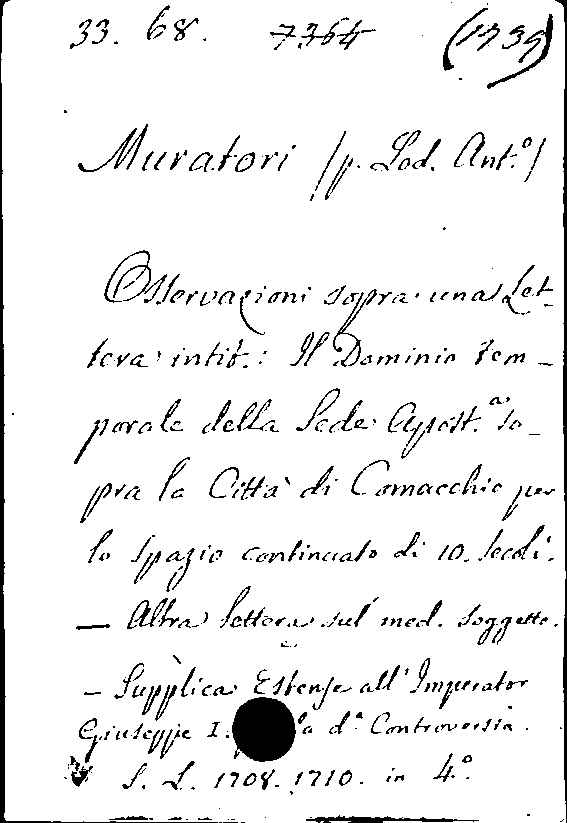 33. 68. 7364 (1739)
Muratori /p. Lod. Ant.º/
Osservazioni sopra una Let-
tera intit.: Il Dominio tem-
porale della Sede Apost.ª so-
pra la Città di Comacchio per
lo spazio continuato di 10. secoli.
— Altra lettera sul med. soggetto.
— Supplica Estense all' Imperator
Giuseppe I. la d.ª Controversia.
S. L. 1708. 1710. in 4.º